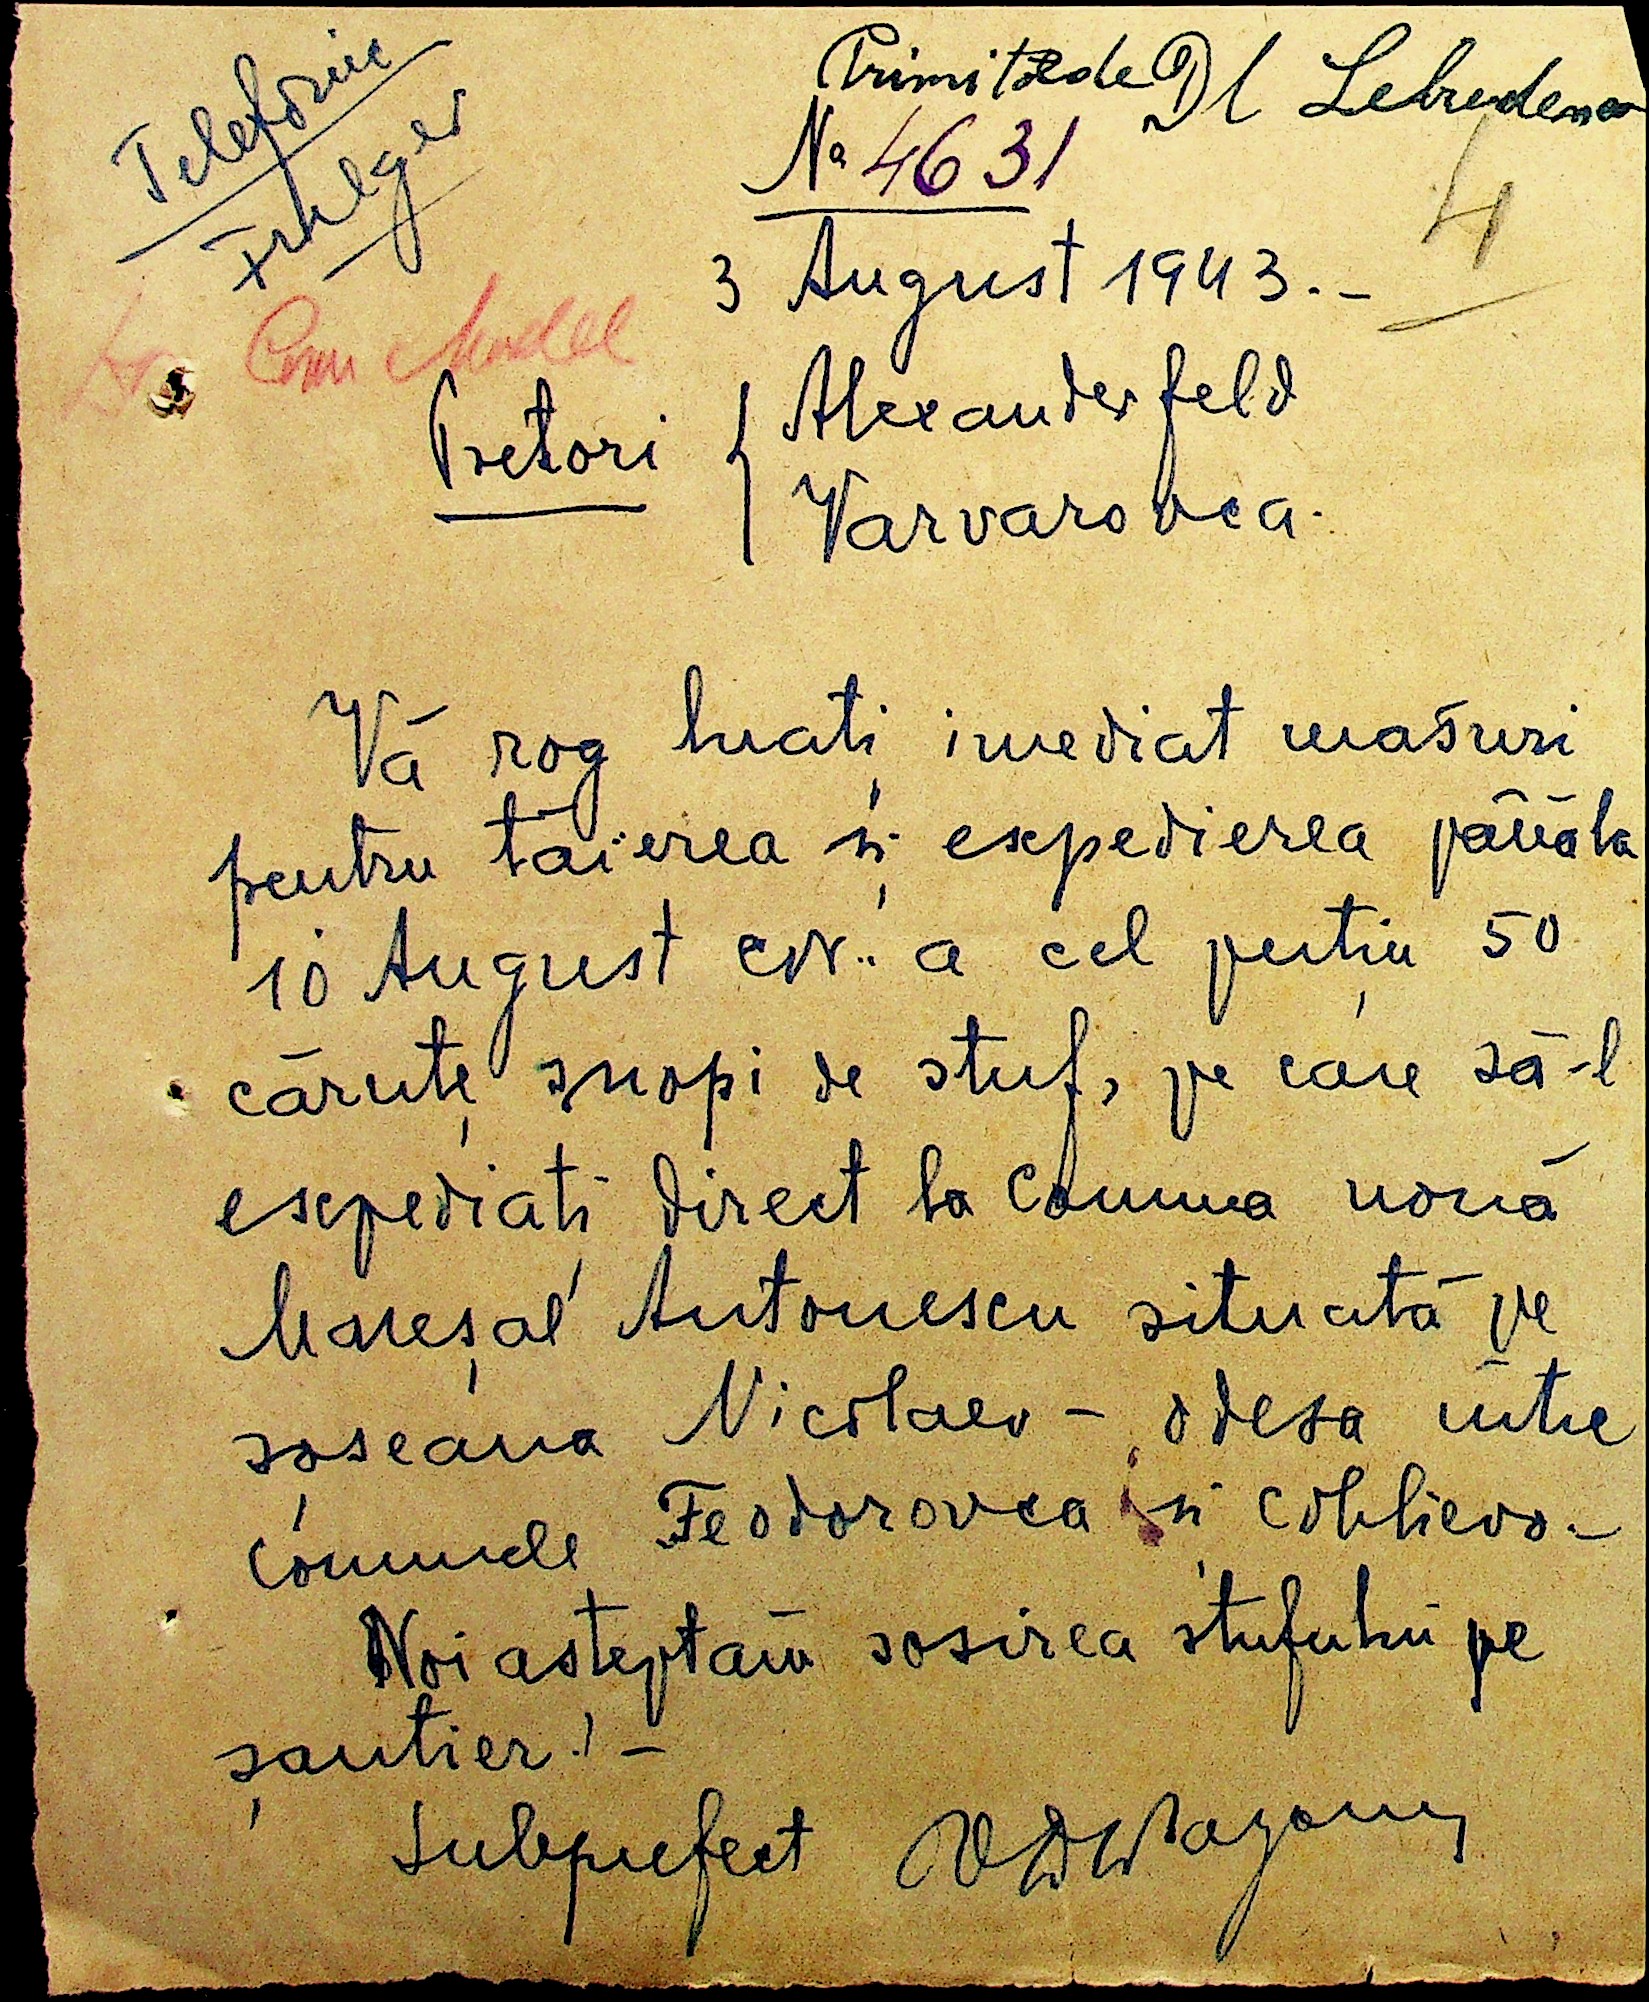 Telefonic
Fulger
Primit de Dl
No 4631
4
3 August 1943.-
Com Model
Pretori { Alexanderfeld
Varvarovca.
Vă rog luați imediat măsuri
pentru tăierea și expedierea până la
10 August crt. a cel puțin 50
căruțe snopi de stuf, pe care să-l
expediați direct la Comuna nouă
Mareșal Antonescu situată pe
șoseaua Nicolaev - Odesa între
comunele Feodorovca și Coblievo.-
Noi așteptăm sosirea stufului pe
șantier.! -
Subprefect